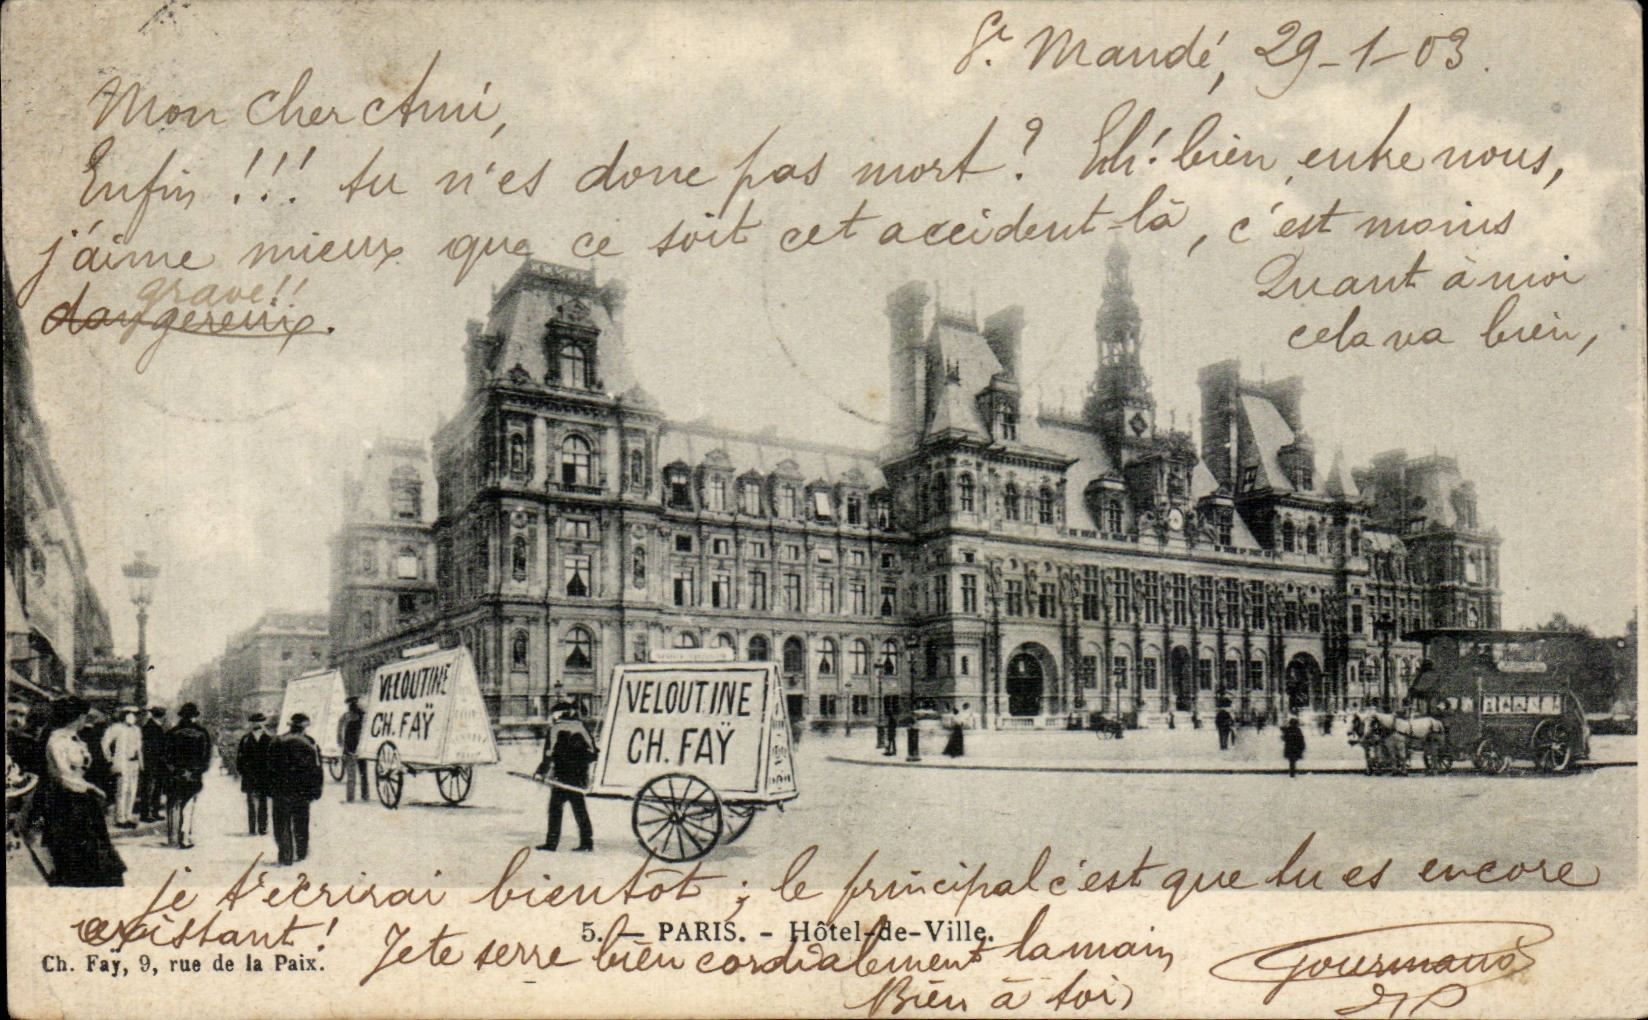 St. Mandé, 29-1-03.
Mon cher Ami,
Enfin !!! tu n'es donc pas mort ? Eh! bien, entre nous,
j'aime mieux que ce soit cet accident-là, c'est moins
grave!!
dangereux.
Quant à moi
cela va bien,
VELOUTINE
CH. FAŸ
VELOUTINE
CH. FAŸ
je t'écrirai bientôt ; le principal c'est que tu es encore
existant !
5. — PARIS. - Hôtel-de-Ville.
Je te serre bien cordialement la main
Ch. Faÿ, 9, rue de la Paix.
Bien à toi,